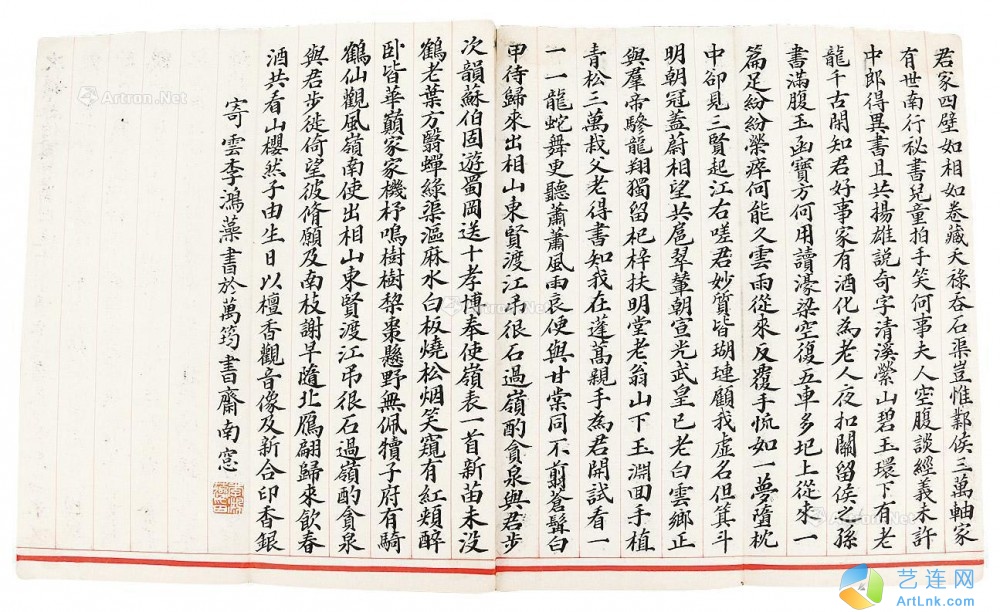 君家四壁如相如卷藏天祿吞石渠豈惟鄴侯三萬軸家
有世南行秘書兒童拍手笑何事夫人空腹談經義未許
中郎得異書且共揚雄說奇字清溪縈山碧玉環下有老
龍千古閒知君好事家有酒化為老人夜扣關留侯之孫
書滿腹玉函寶方何用讀濠梁空復五車多圯上從來一
篇足紛紛榮瘁何能久雲雨從來反覆手恍如一夢墮枕
中卻見三賢起江右嗟君妙質皆瑚璉顧我虛名但箕斗
明朝冠蓋蔚相望共扈翠輦朝宣光武皇已老白雲鄉正
與羣帝驂龍翔獨留杞梓扶明堂老翁山下玉淵回手植
青松三萬栽父老得書知我在蓬蒿親手為君開試看一
一一龍蛇舞更聽蕭蕭風雨哀便與甘棠同不翦蒼髯白
甲待歸來出相山東賢渡江弔很石過嶺酌貪泉與君步
次韻蘇伯固遊蜀岡送十孝博奉使嶺表一首新苗未没
鶴老葉方翳蟬綠渠漚麻水白板燒松烟笑窺有紅頰醉
卧皆華巔家家機杼鳴樹樹棃棗懸野無佩犢子府有騎
鶴仙觀風嶺南使出相山東賢渡江弔很石過嶺酌貪泉
與君步徙倚望彼脩願及南枝謝早隨北雁翩歸來飲春
酒共看山櫻然子由生日以檀香觀音像及新合印香銀
寄雲李鴻藻書於萬筠書齋南窓
Artron.Net
艺连网
ArtLnk.com